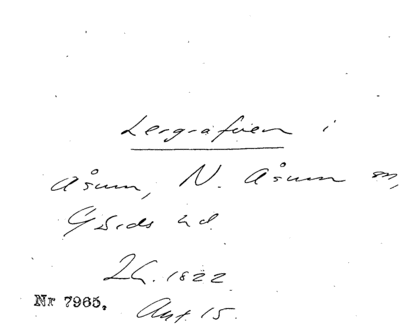 Lergrafven i
Åsum, N. Åsum sn,
Gärds hd.
1822.
Nr 7965.
Ant. 15.